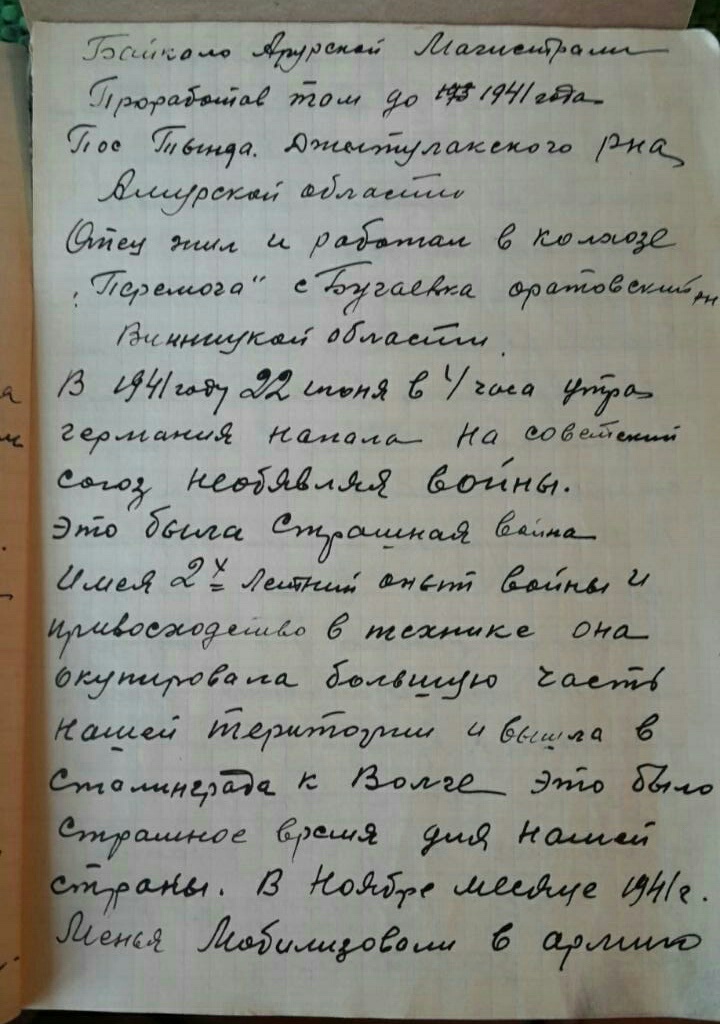 Байкало Амурской Магистрали
Проработав там до 193 1941 года
Пос Тында. Джетулакского рна
Амурской области
Отец жил и работал в колхозе
"Перемога" с Бугаевка оратовский рн
Винницкой области.
В 1941 году 22 июня в 4 часа утра
германия напала на советский
союз необявляя войны.
Это была Страшная война
Имея 2х Летний опыт войны и
привосходство в технике она
окупировала большую часть
нашей територии и вышла в
Сталинграда к Волге Это было
Страшное время для нашей
страны. В Ноябре месяце 1941 г.
Менья Мобилизовали в армию